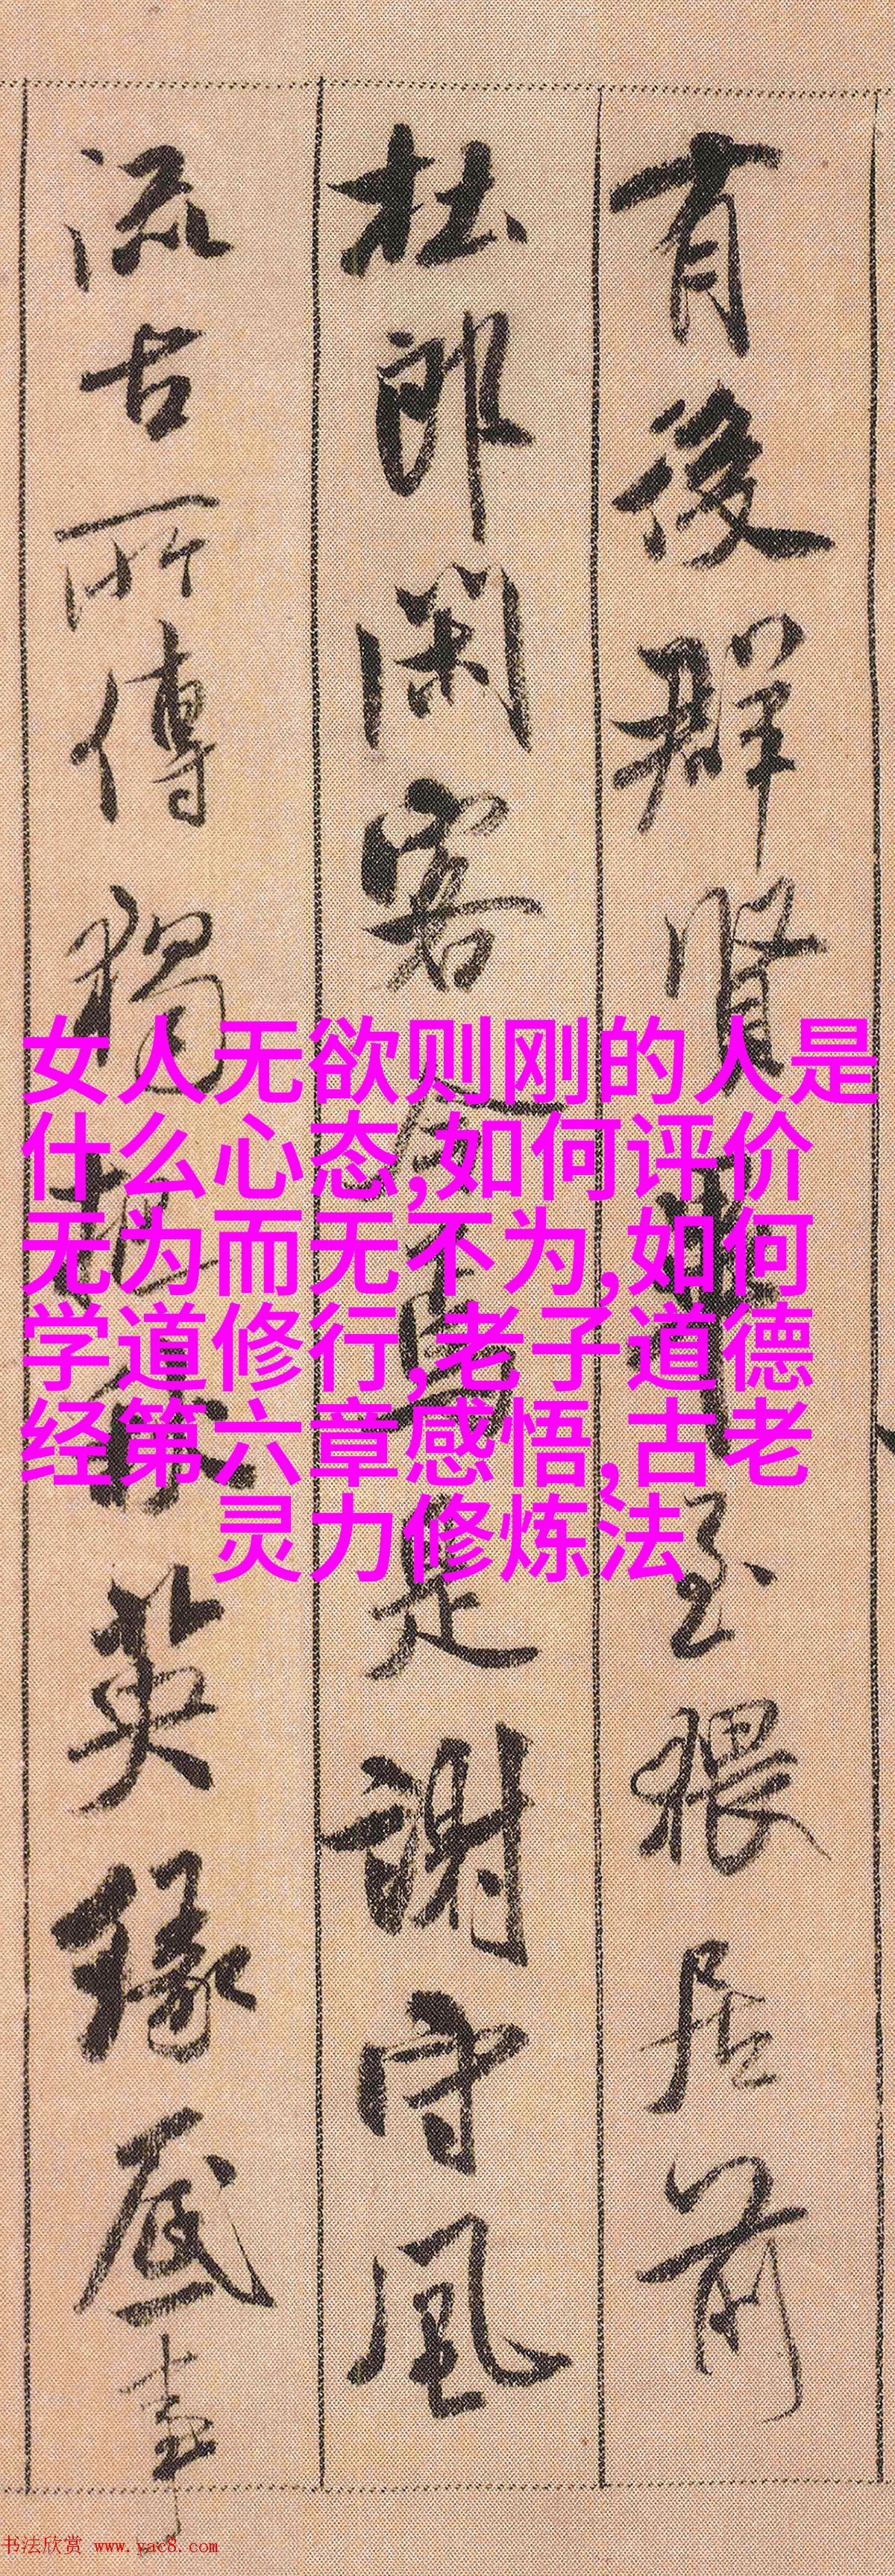 有後群賢畢至猥居前
杜郎閑客今焉是謝守風
流古所傳獨把秋英緣底事
女人无欲则刚的人是
什么心态,如何评价
无为而无不为,如何
学道修行,老子道德
经第六章感悟,古老
灵力修炼法
书法欣赏 www.yac8.com